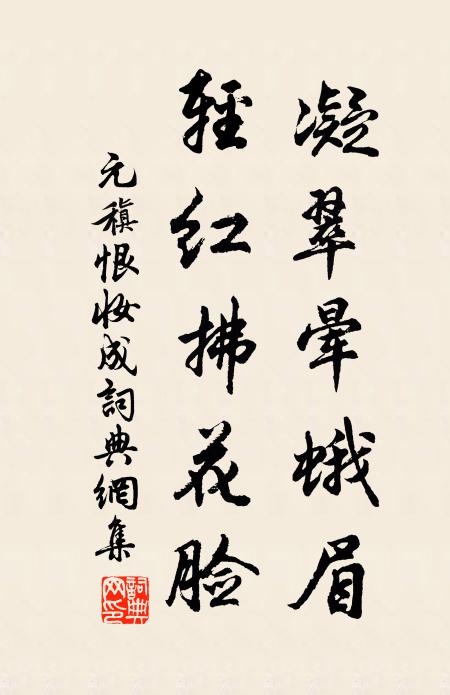 凝翠晕蛾眉
轻红拂花脸
元稹恨妆成詞典網集
詞典网印